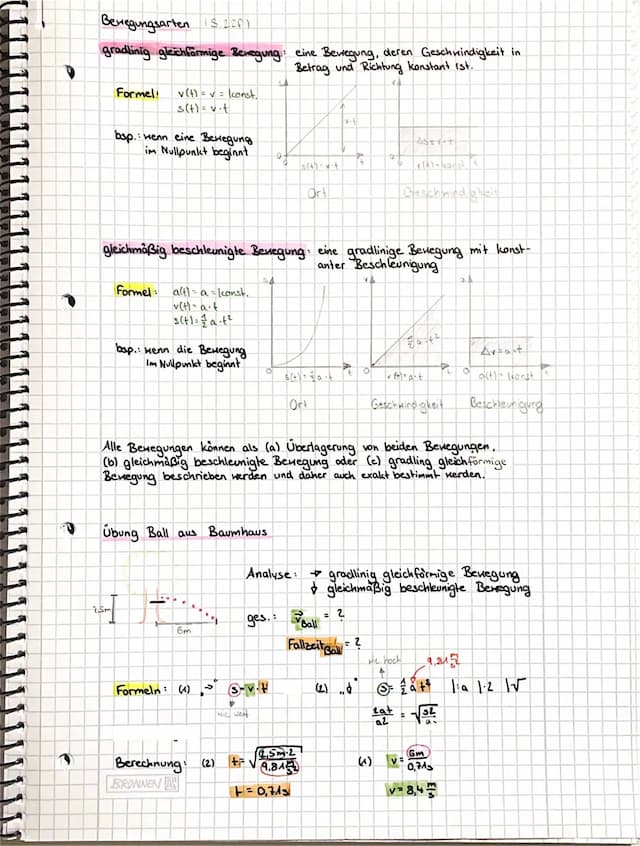 Bewegungsarten (S.22f)
gradlinig gleichförmige Bewegung: eine Bewegung, deren Geschwindigkeit in
Betrag und Richtung konstant ist.
Formel: v(t) = v = konst.
s(t) = v·t
bsp.: wenn eine Bewegung
im Nullpunkt beginnt
v·t
0 s(t)=v·t t
Ort
Δs=v·t
0 v(t)=konst t
Geschwindigkeit
gleichmäßig beschleunigte Bewegung: eine gradlinige Bewegung mit konst-
anter Beschleunigung
Formel: a(t) = a = konst.
v(t) = a·t
s(t) = 1/2 a·t²
bsp.: wenn die Bewegung
im Nullpunkt beginnt
0 t
Ort
1/2 a·t²
0 v(t)=a·t t
Geschwindigkeit
Δv=a·t
0 a(t)=konst t
Beschleunigung
Alle Bewegungen können als (a) Überlagerung von beiden Bewegungen,
(b) gleichmäßig beschleunigte Bewegung oder (c) gradling gleichförmige
Bewegung beschrieben werden und daher auch exakt bestimmt werden.
Übung Ball aus Baumhaus
Analyse: → gradlinig gleichförmige Bewegung
↓ gleichmäßig beschleunigte Bewegung
2,5m
6m
ges.: v⃗Ball = ?
FallzeitBall = ?
wie hoch
9,81 m/s²
Formeln: (1) „→" s=v·t (2) „↓" s = 1/2 a t² |:a |·2 |√
wie weit
Berechnung: (2) t = √(2,5m·2 / 9,81 m/s²) (1) v = 6m/0,71s
BRUNNEN
t = 0,71s v = 8,4 m/s